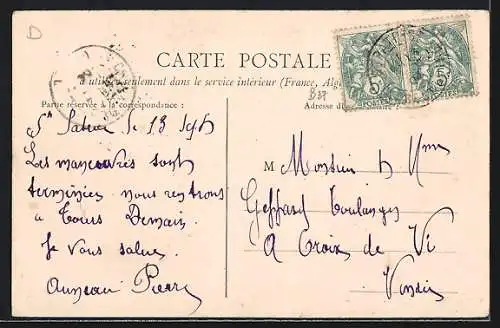 D
CARTE POSTALE
à utiliser seulement dans le service intérieur (France, Alg
Partie réservée à la correspondance :
Adresse d
B37
le 13 sept
Les manœuvres sont
terminées nous rentrons
à Tours Demain.
Je vous salue.
Auneau Pierre
M Monsieur
Geffard Boulanger
A Croix de Vi
Vendée
5
POSTES